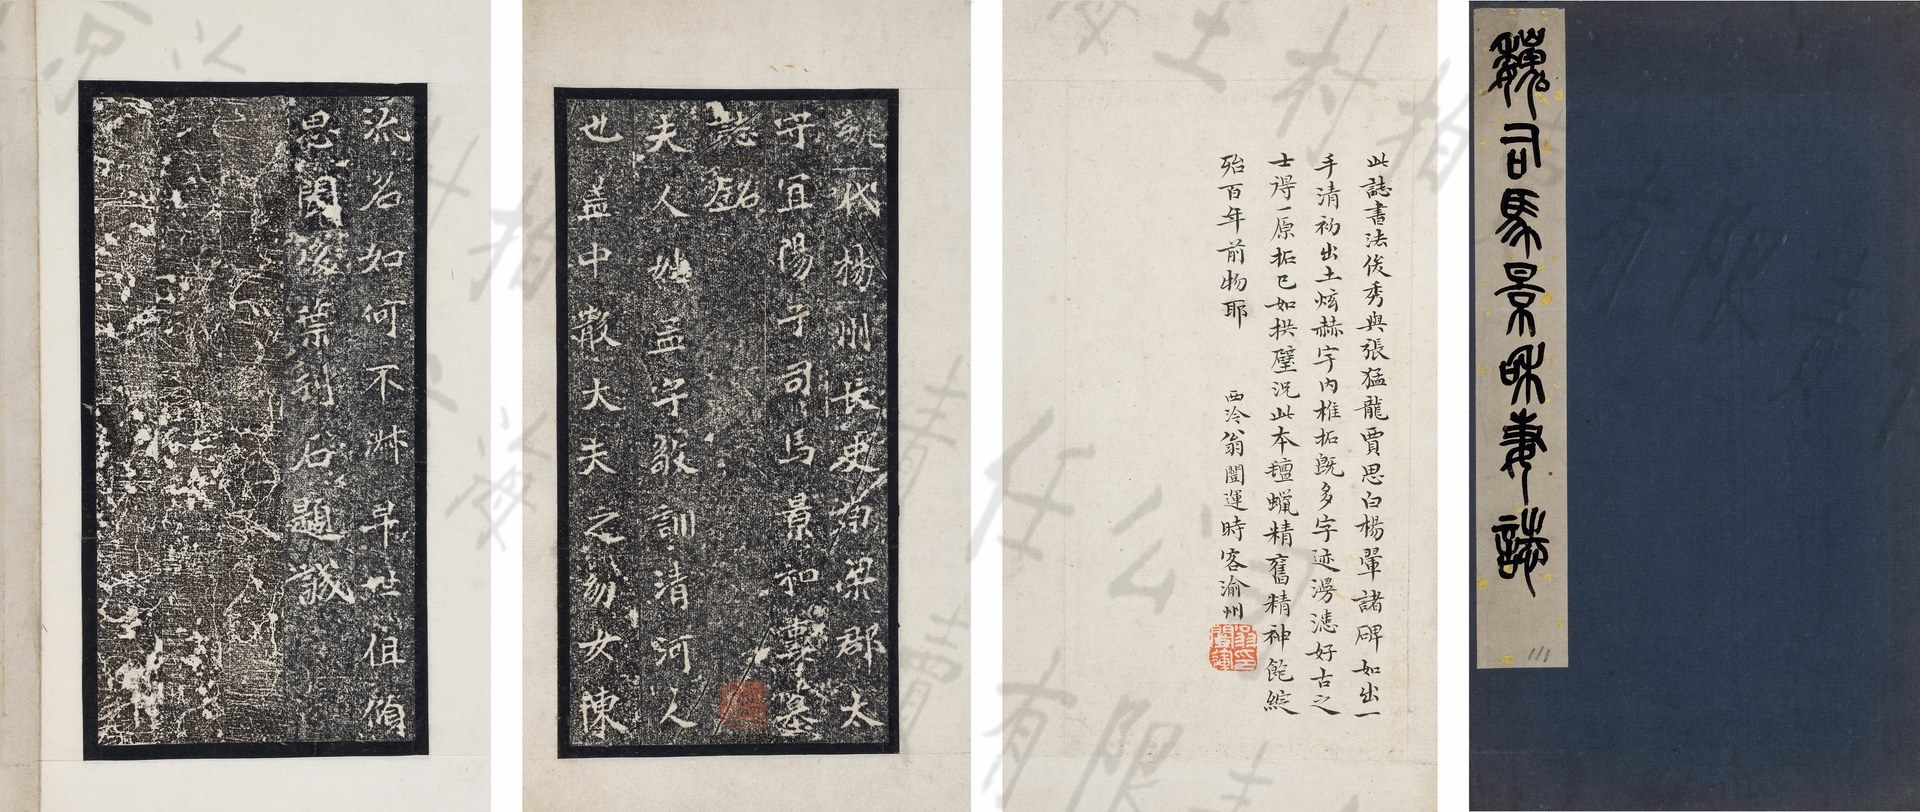 魏司馬景和妻誌
此誌書法俊秀與張猛龍賈思白楊翬諸碑如出一
手清初出土炫赫宇内椎拓既多字迹漫漶好古之
士得一原拓已如拱璧況此本氊蠟精舊精神飽綻
殆百年前物耶
西泠翁闓運時客渝州
翁闓運印
魏代楊州長史南梁郡太
守宜陽子司馬景和妻墓
誌銘
夫人姓孟字敬訓清河人
也盖中散大夫之幼女陳
流名如何不淑早世徂傾
思聞後葉刊石題誠